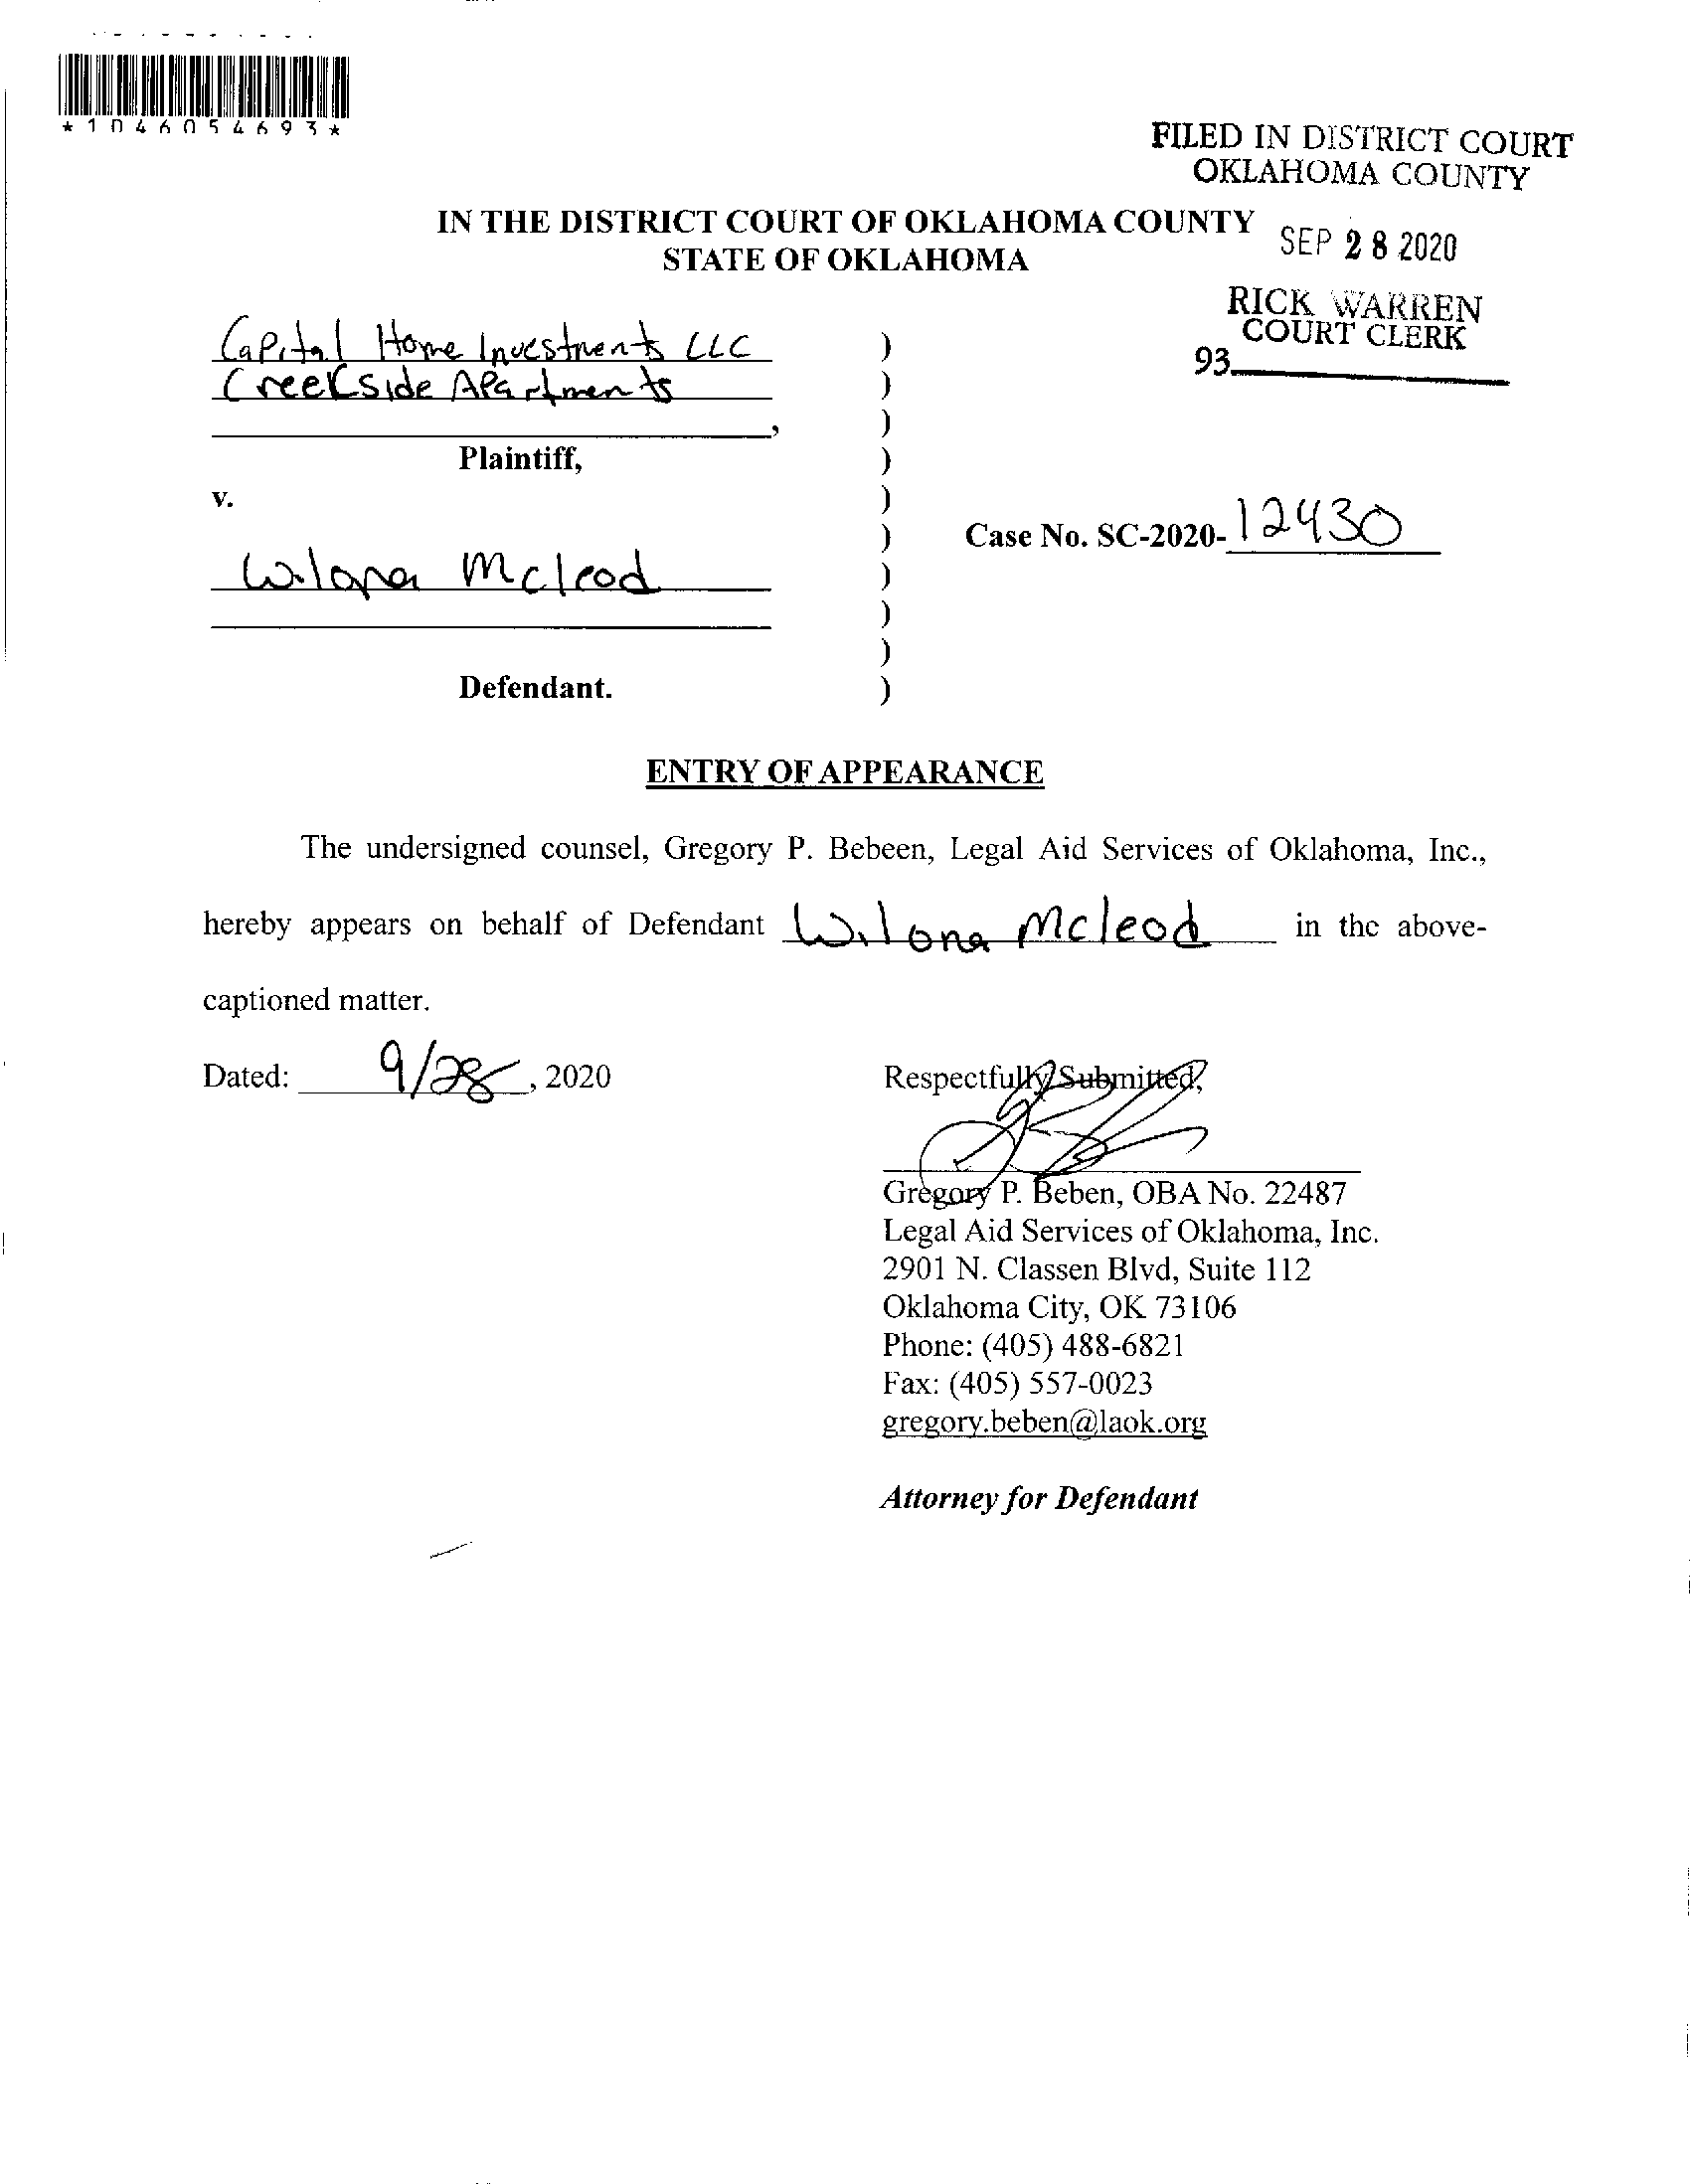 *1046054693*
FILED IN DISTRICT COURT
OKLAHOMA COUNTY
IN THE DISTRICT COURT OF OKLAHOMA COUNTY
STATE OF OKLAHOMA
SEP 28 2020
RICK WARREN
COURT CLERK
93
Capital Home Investments LLC )
Creekside Apartments )
, )
Plaintiff, )
v. )
) Case No. SC-2020-12430
Wilona Mcleod )
)
)
Defendant. )
ENTRY OF APPEARANCE
The undersigned counsel, Gregory P. Bebeen, Legal Aid Services of Oklahoma, Inc.,
hereby appears on behalf of Defendant Wilona Mcleod in the above-
captioned matter.
Dated: 9/28, 2020
Respectfully Submitted,
Gregory P. Beben, OBA No. 22487
Legal Aid Services of Oklahoma, Inc.
2901 N. Classen Blvd, Suite 112
Oklahoma City, OK 73106
Phone: (405) 488-6821
Fax: (405) 557-0023
gregory.beben@laok.org
Attorney for Defendant